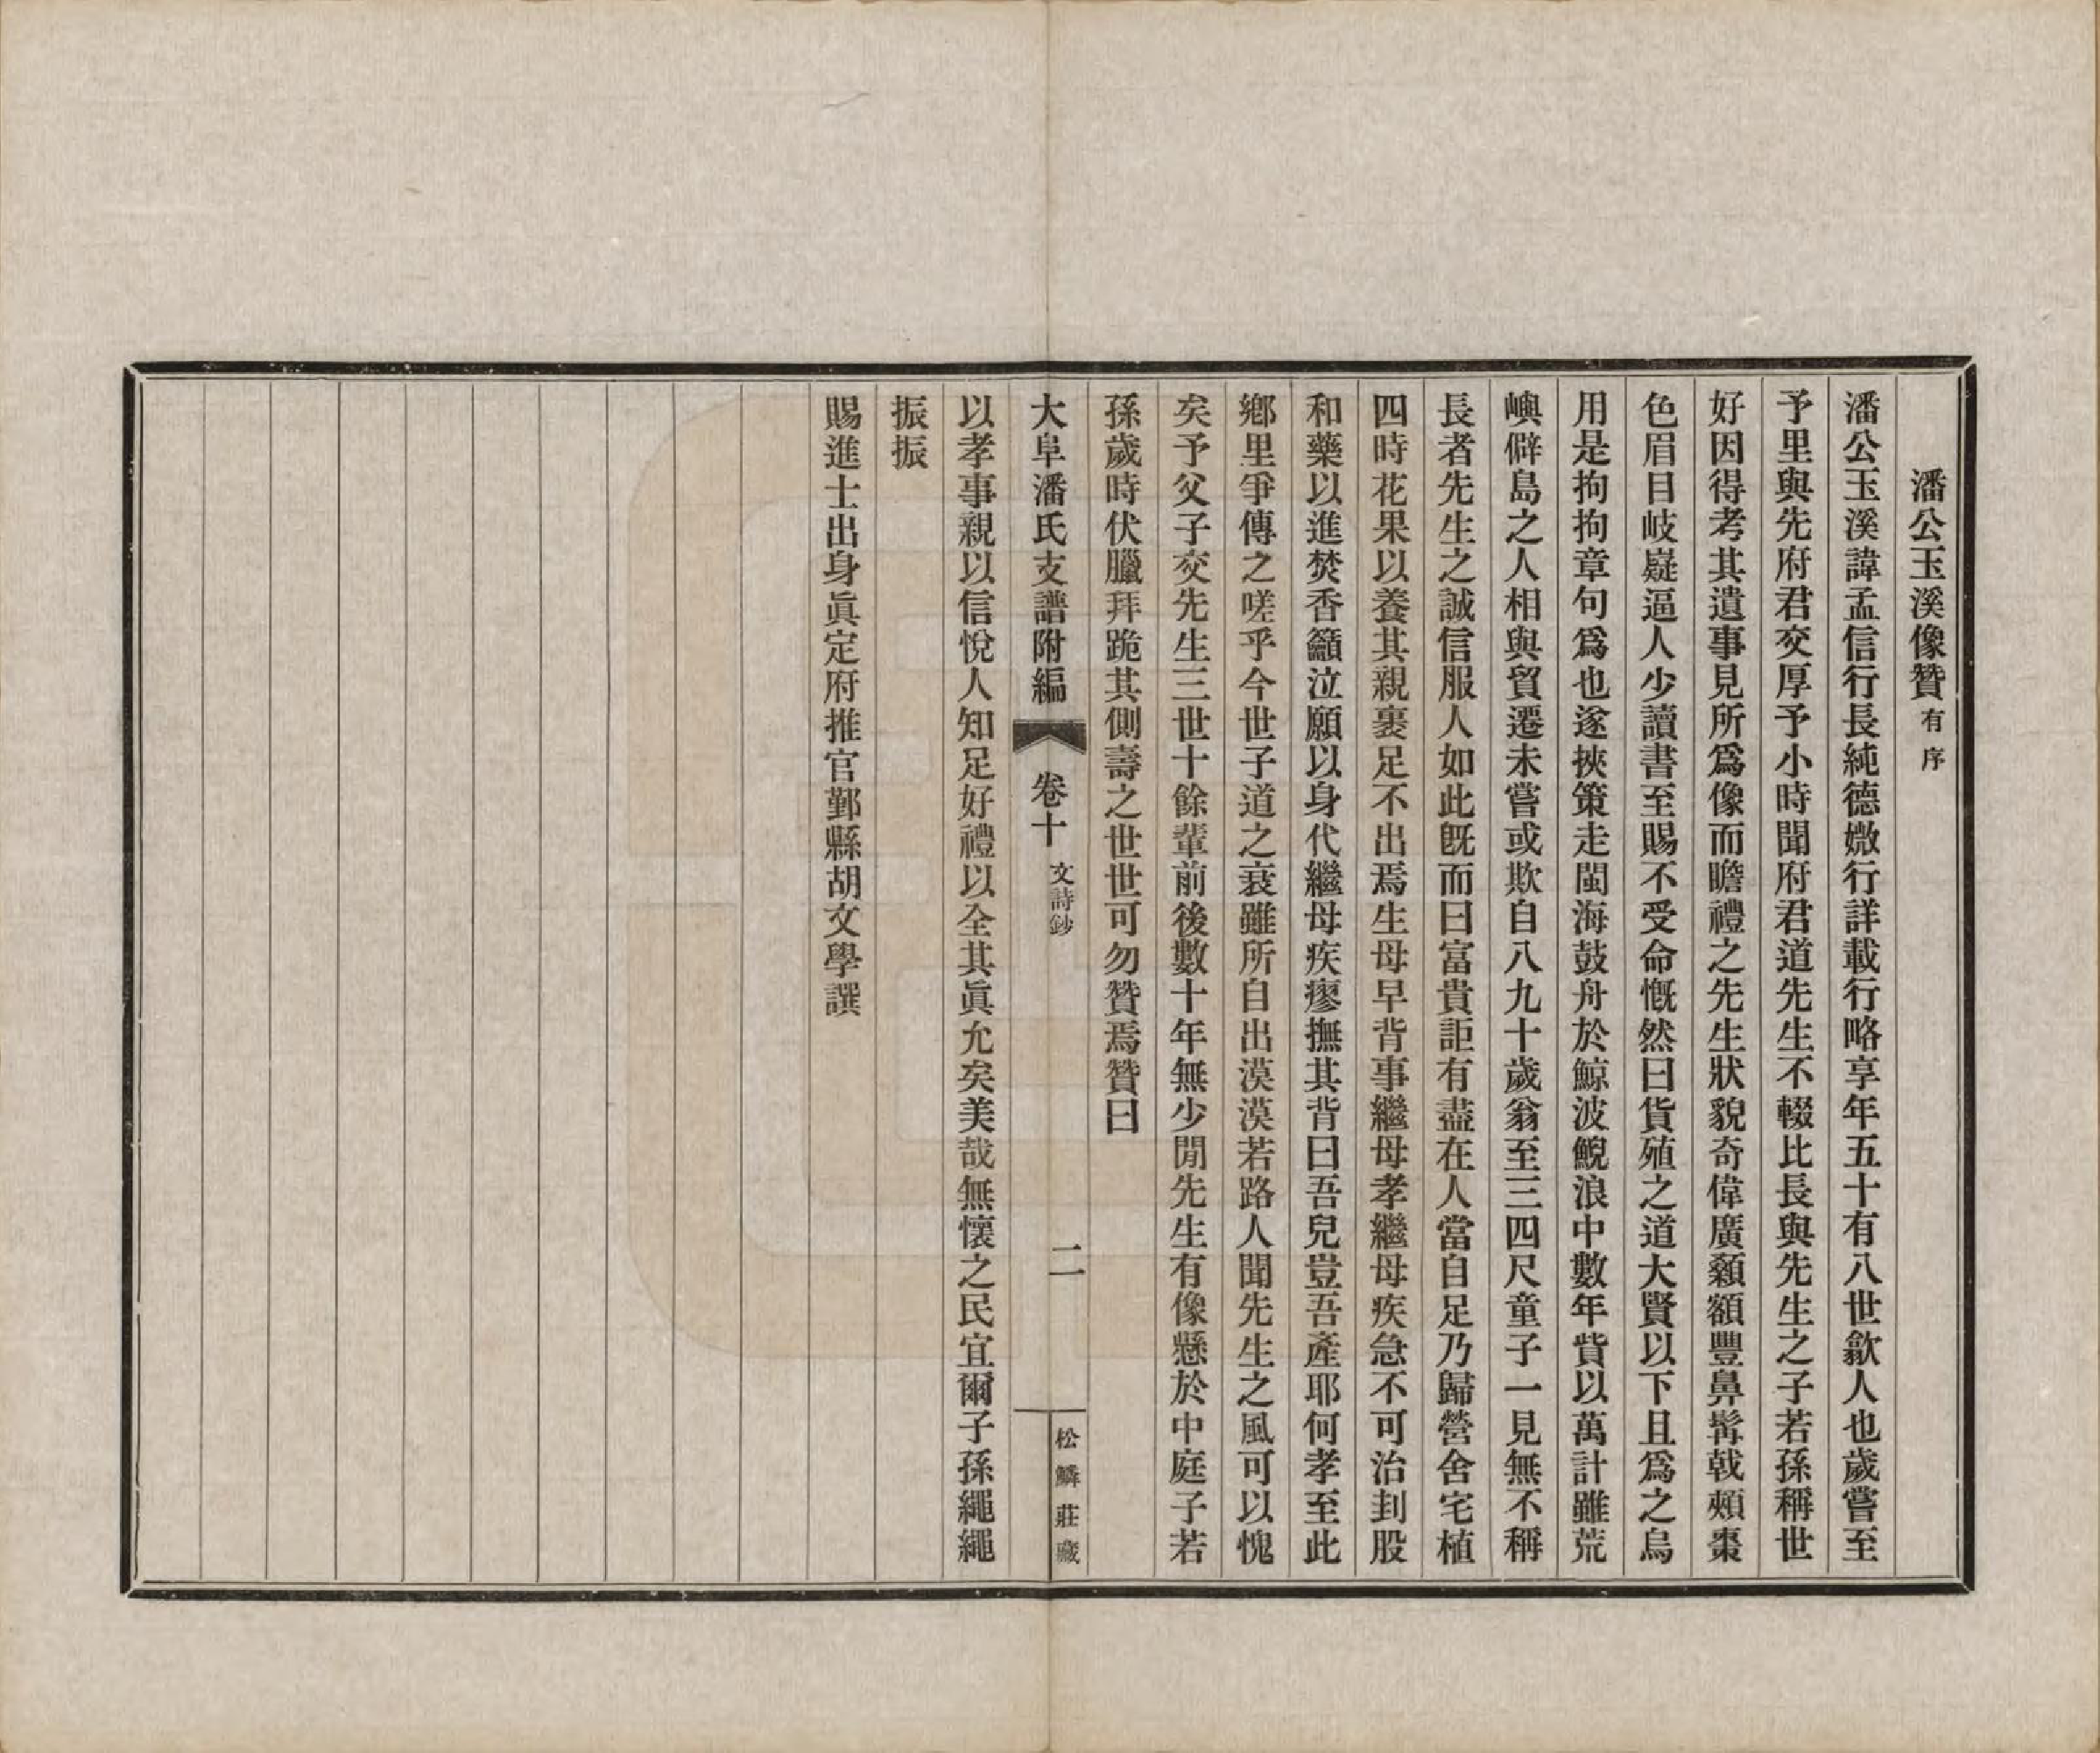 潘公玉溪像贊有序
潘公玉溪諱孟信行長純德媺行詳載行略享年五十有八世歙人也歲嘗至
予里與先府君交厚予小時聞府君道先生不輟比長與先生之子若孫稱世
好因得考其遺事見所爲像而瞻禮之先生狀貌奇偉廣顙額豐鼻髯戟頰棗
色眉目岐嶷逼人少讀書至賜不受命慨然曰貨殖之道大賢以下且爲之烏
用是拘拘章句爲也遂挾策走閩海鼓舟於鯨波鯢浪中數年貲以萬計雖荒
嶼僻島之人相與貿遷未嘗或欺自八九十歲翁至三四尺童子一見無不稱
長者先生之誠信服人如此旣而曰富貴詎有盡在人當自足乃歸營舍宅植
四時花果以養其親裹足不出焉生母早背事繼母孝繼母疾急不可治刲股
和藥以進焚香籲泣願以身代繼母疾瘳撫其背曰吾兒豈吾產耶何孝至此
鄉里爭傳之嗟乎今世子道之衰雖所自出漠漠若路人聞先生之風可以愧
矣予父子交先生三世十餘輩前後數十年無少閒先生有像懸於中庭子若
孫歲時伏臘拜跪其側壽之世世可勿贊焉贊曰
大阜潘氏支譜附編 卷十 文詩鈔 二 松鱗莊藏
以孝事親以信悅人知足好禮以全其眞允矣美哉無懷之民宜爾子孫繩繩
振振
賜進士出身眞定府推官鄞縣胡文學譔